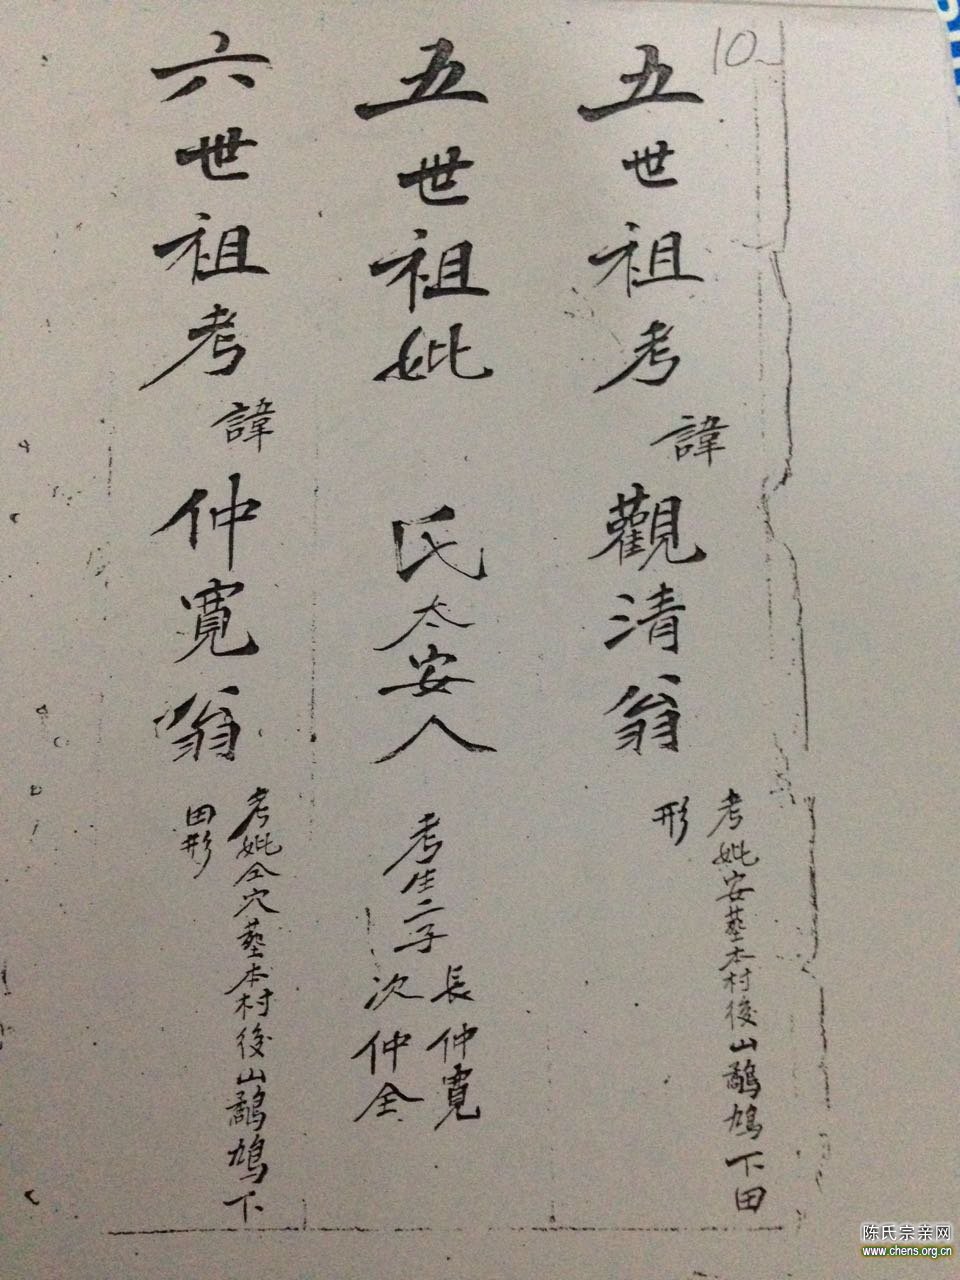 10
五世祖考諱觀清翁
考妣安墓本村後山鷓鳩下田
形
五世祖妣 氏太安人
考生二子
長仲寬
次仲全
六世祖考諱仲寬翁
考妣仝穴墓本村後山鷓鳩下
田形
陈氏宗亲网
www.chens.org.cn